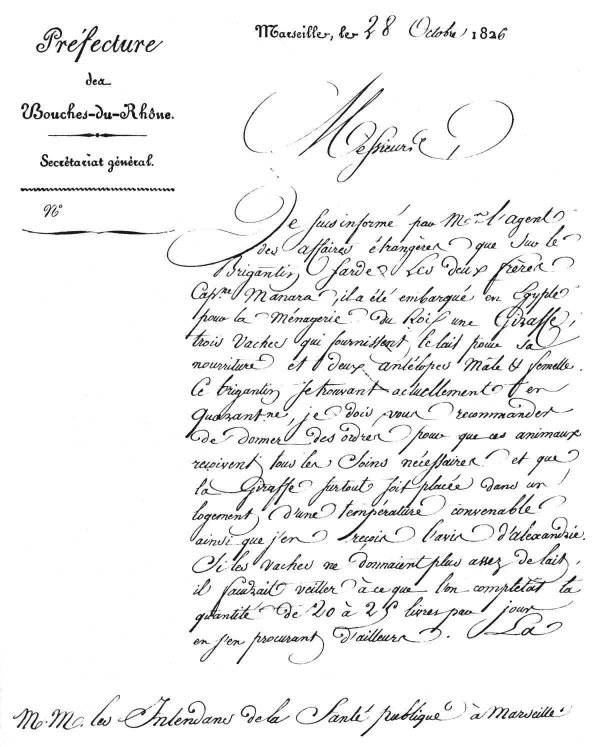 Préfecture
des
Bouches-du-Rhône.
Secrétariat général.
N.º
Marseille, le 28 Octobre 1826
Messieurs,
Je suis informé par Mr. l'agent
des affaires étrangères que sur le
Brigantin Sarde Les deux frères
Capne. Manara, il a été embarqué en Egypte
pour la Ménagerie du Roi une Giraffe,
trois Vaches qui fournissent le lait pour sa
nourriture et deux antélopes Mâle & femelle.
Ce brigantin se trouvant actuellement en
Quarantne, je dois vous recommander
de donner des ordres pour que ces animaux
reçoivent tous les Soins nécessaires et que
la Giraffe surtout soit placée dans un
logement d'une température convenable
ainsi que j'en reçois l'avis d'alexandrie.
Si les vaches ne donnaient plus assez de lait,
il faudrait veiller à ce que l'on completat la
quantité de 20 à 25 livres par jour
en s'en procurant d'ailleurs. La
M.M. les Intendans de la Santé publique à Marseille